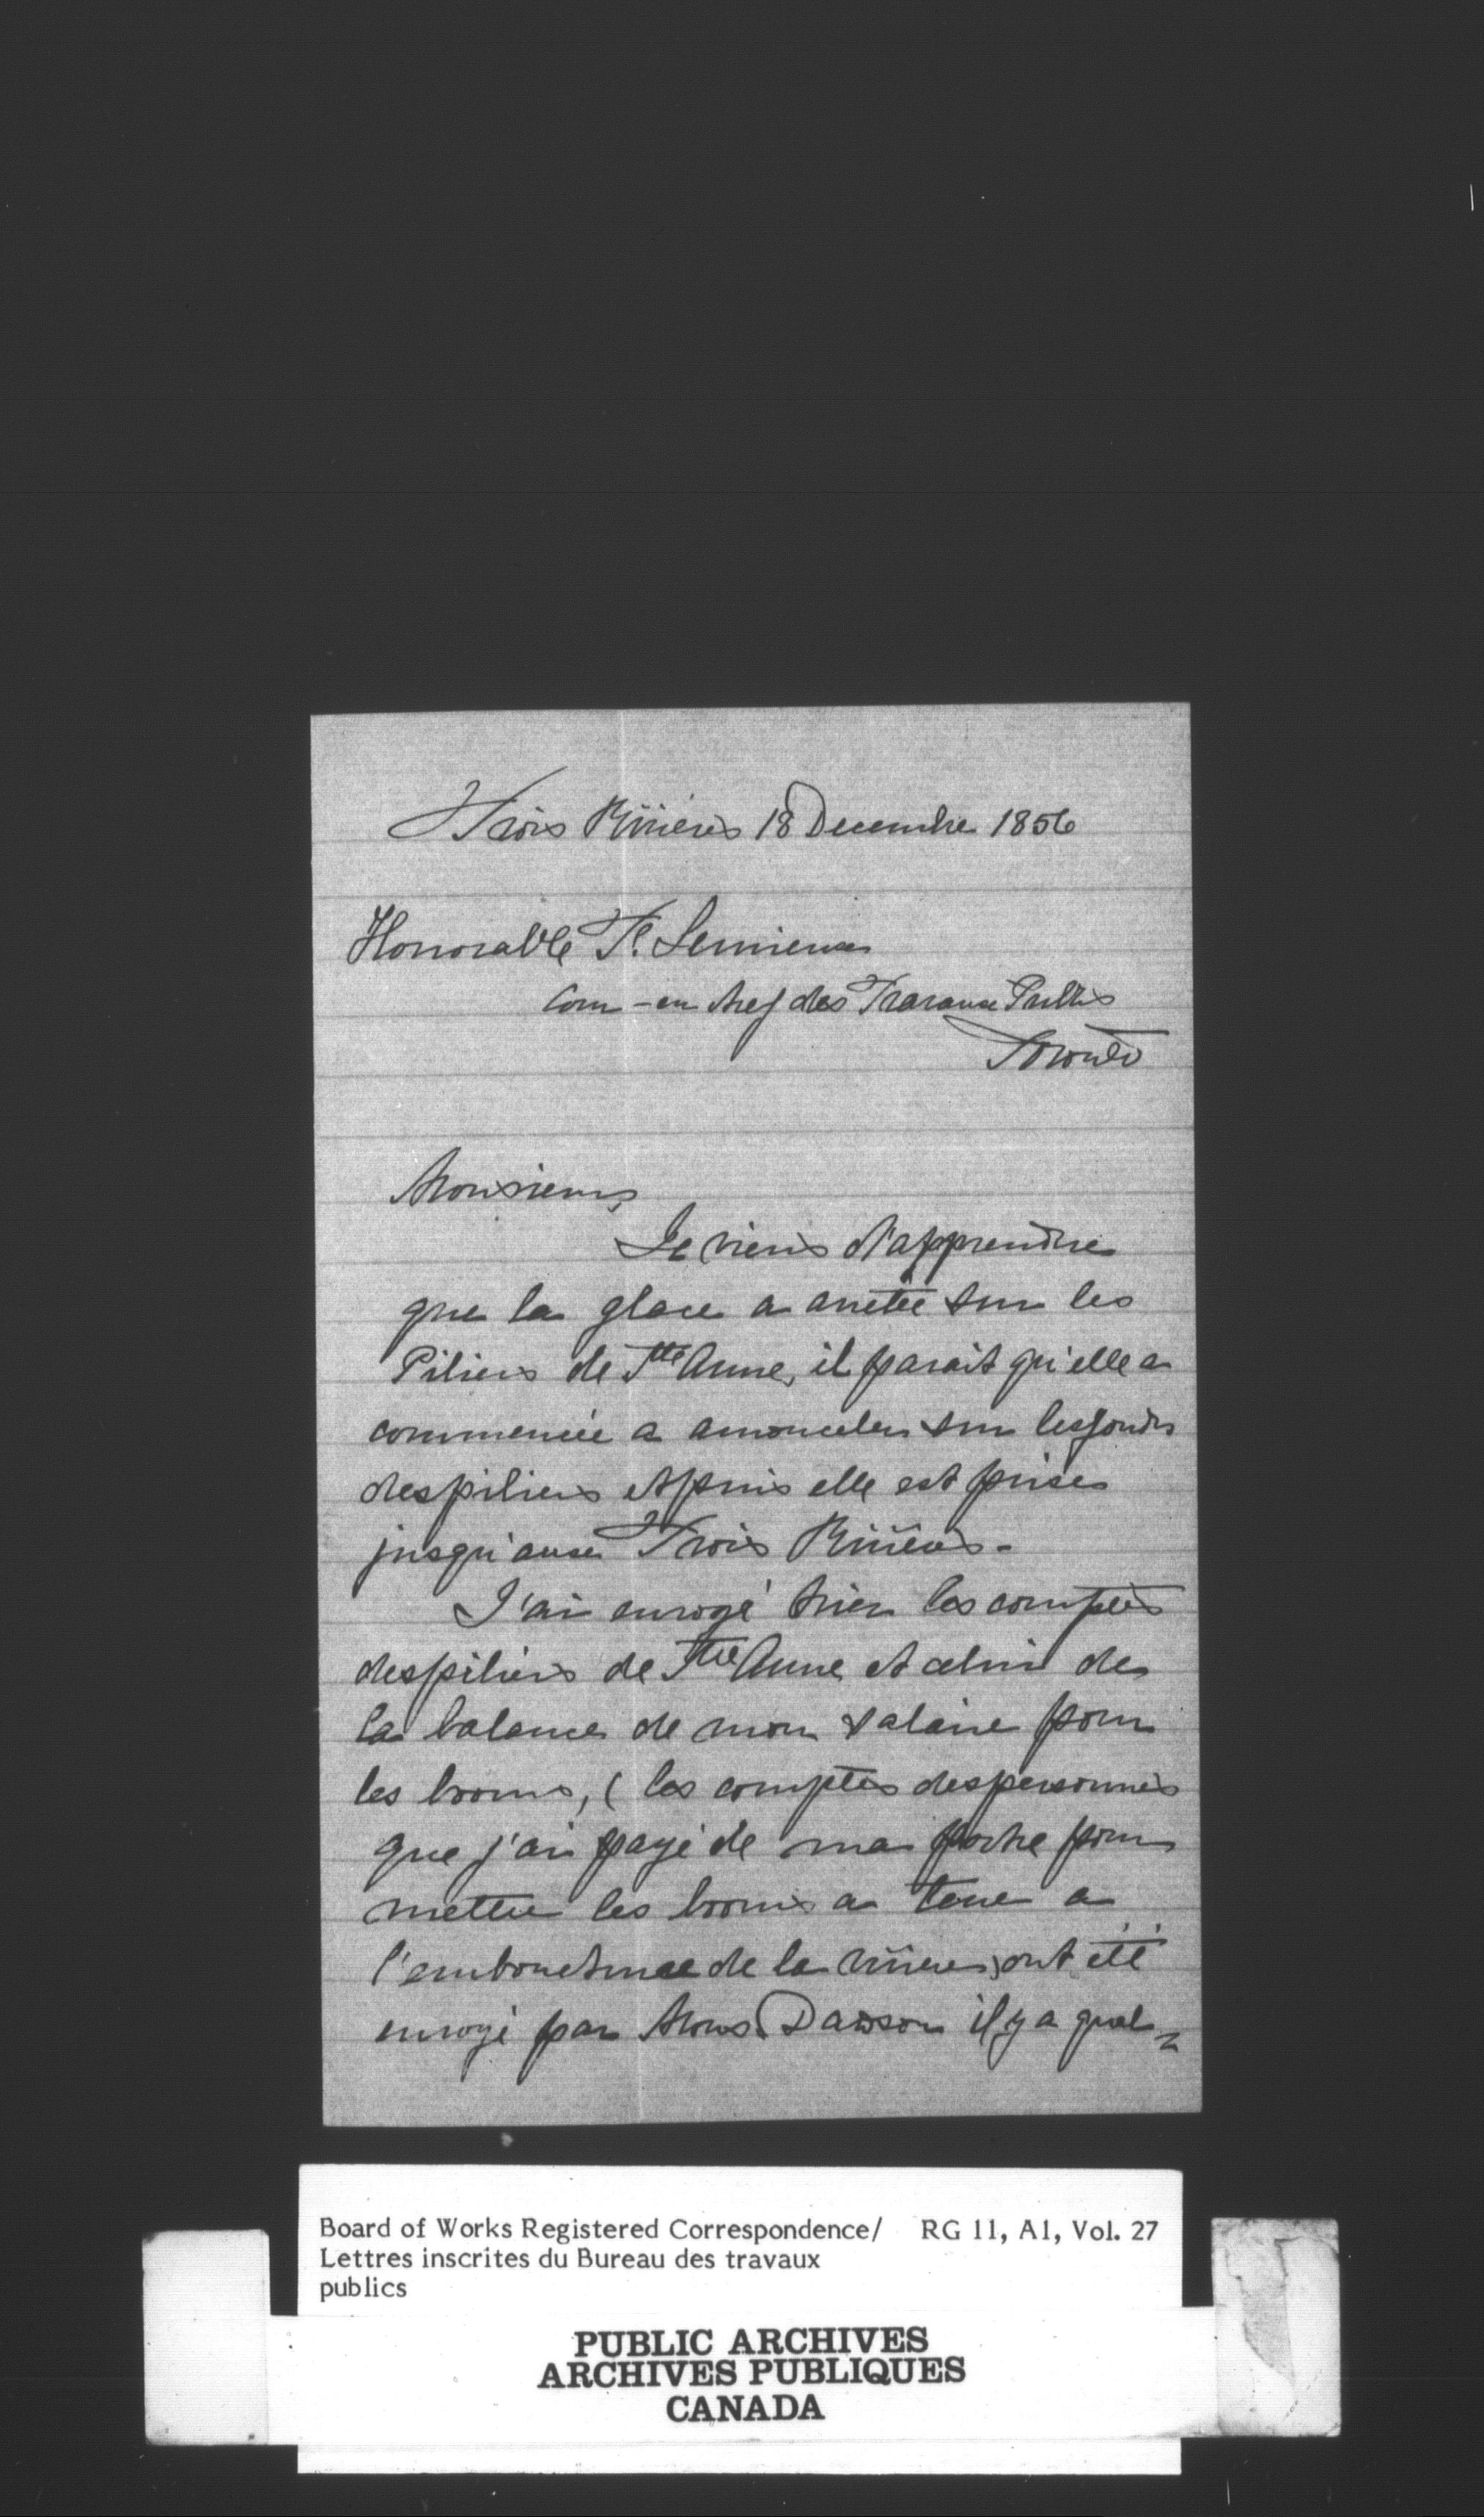 Trois Rivieres 18 Decembre 1856
Honorable F. Lemieux
Com-en chef des Travaux Publics
Toronto
Monsieur,
Je viens d'apprendre
que la glace a arretée sur les
Piliers de Ste Anne, il parait qu'elle a
commencée a amonceler sur les fonds
des piliers et puis elle est prise
jusqu'aux Trois Rivieres -
J'ai envoyé hier les comptes
des piliers de Ste Anne et celui de
la balance de mon salaire pour
les booms, ( les comptes des personnes
que j'ai payé de ma poche pour
mettre les booms a terre a
l'embouchure de la riviere) ont été
envoyé par Mons. Dawson il y a quel=
Board of Works Registered Correspondence/ RG 11, A1, Vol. 27
Lettres inscrites du Bureau des travaux
publics
PUBLIC ARCHIVES
ARCHIVES PUBLIQUES
CANADA